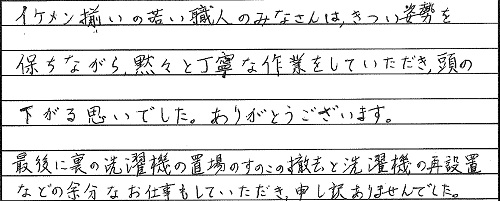 イケメン揃いの若い職人のみなさんは、きつい姿勢を
保ちながら、黙々と丁寧な作業をしていただき、頭の
下がる思いでした。ありがとうございます。
最後に裏の洗濯機の置場のすのこの撤去と洗濯機の再設置
などの余分なお仕事もしていただき、申し訳ありませんでした。